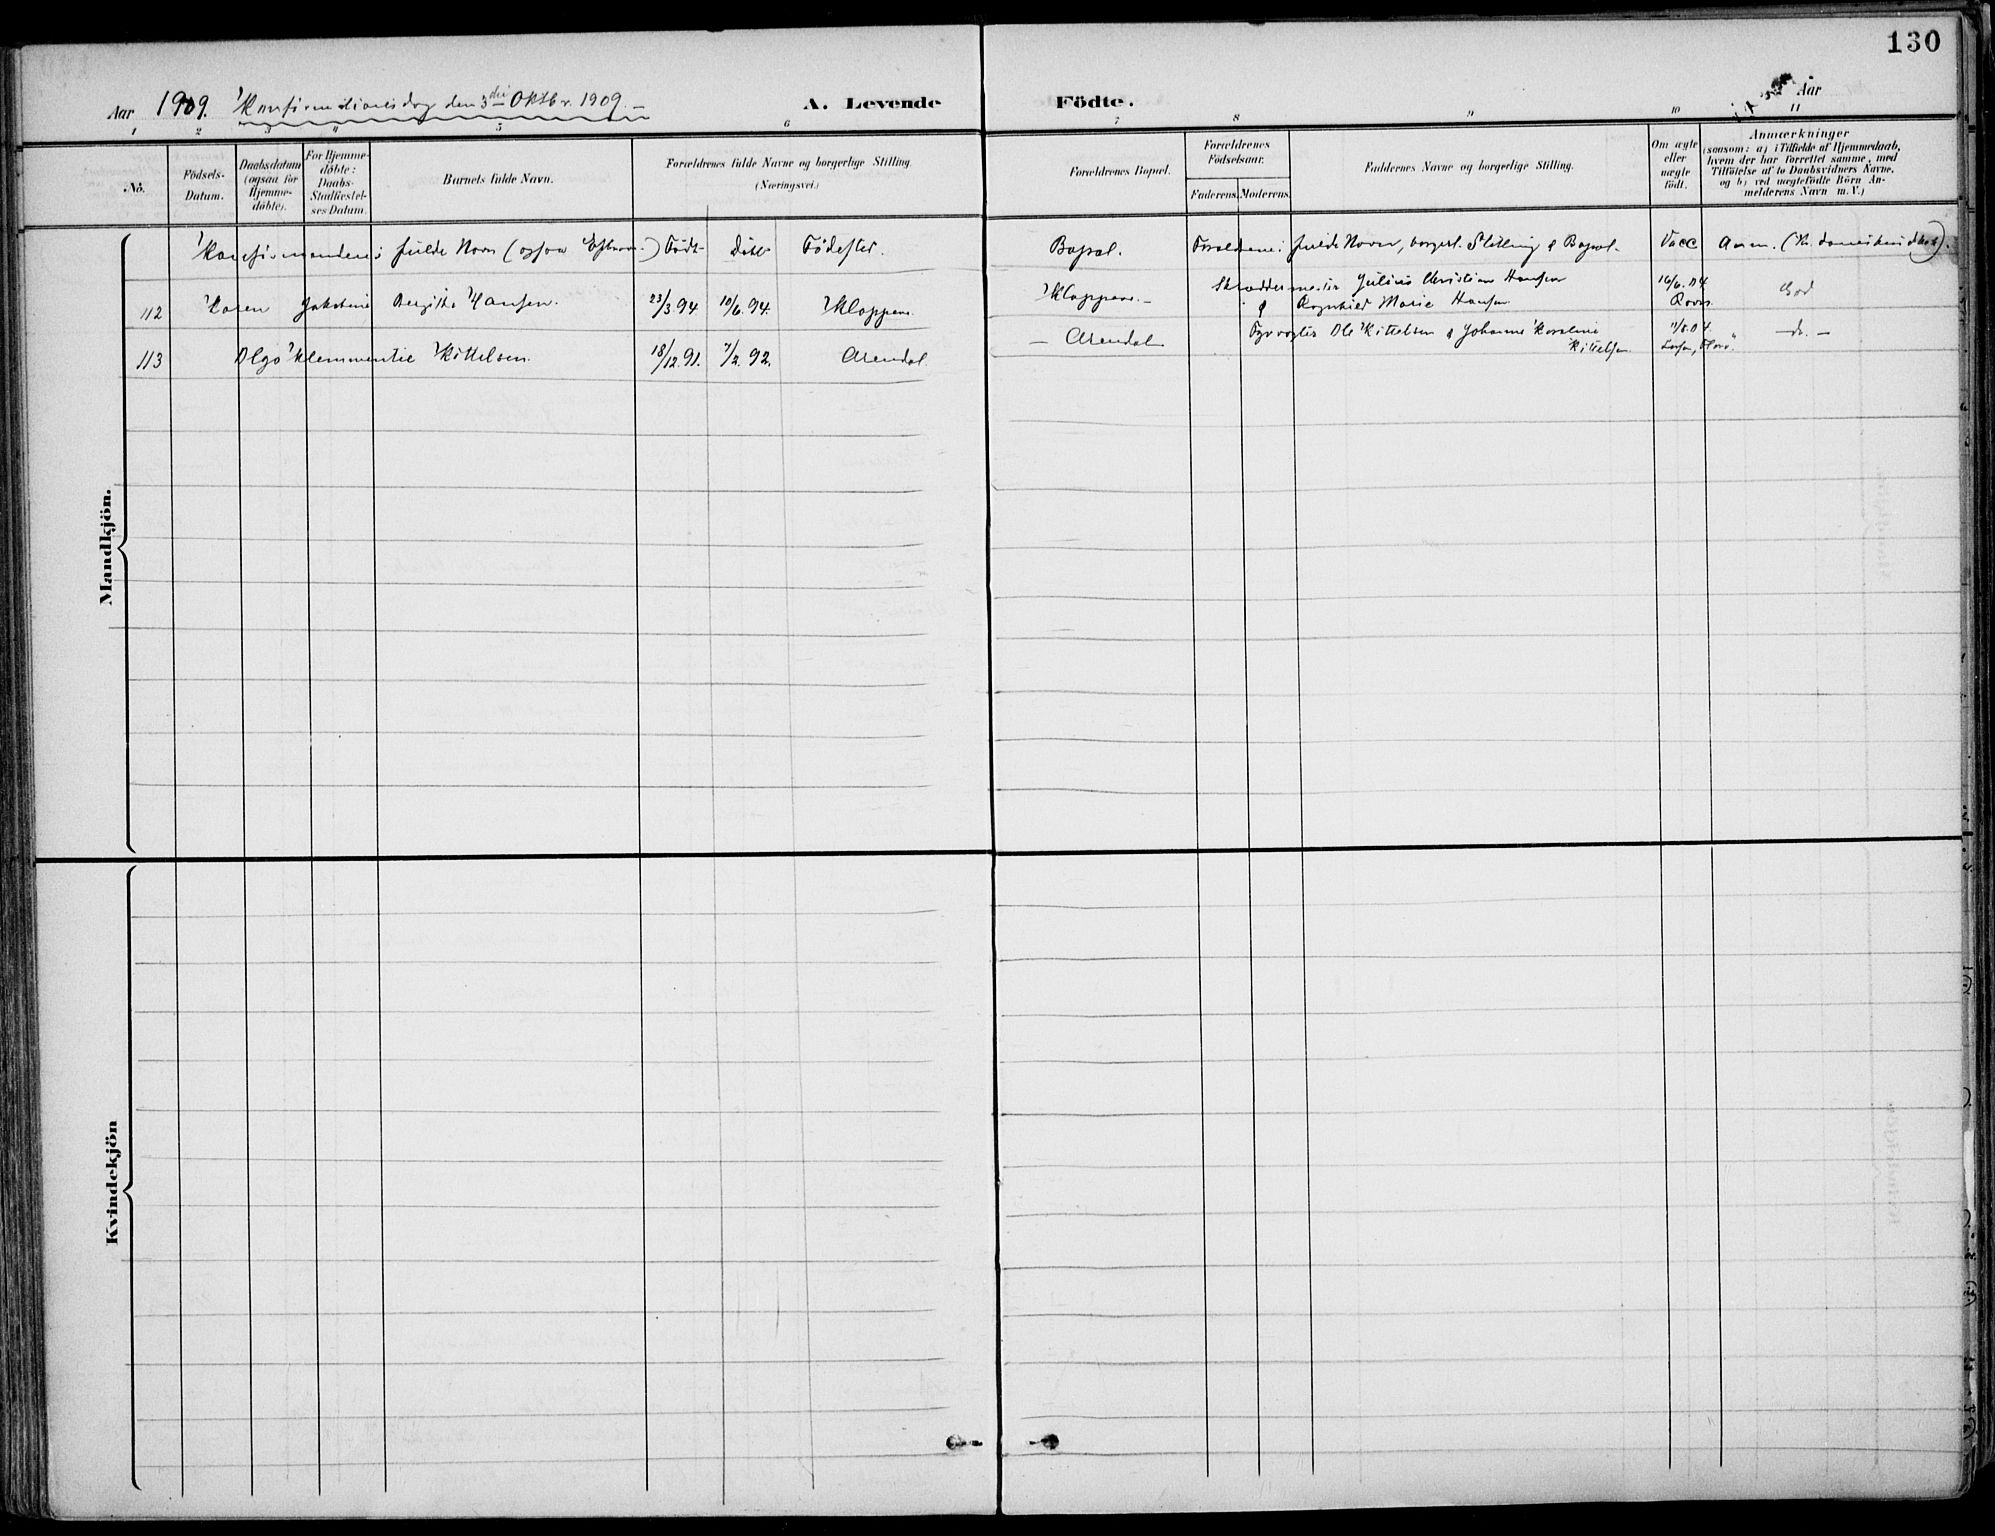 130
Aar 1909. Konfirmationsdag den 3die Oktbr. 1909. A. Levende Födte. Aar
1 2 3 4 5 6 7 8 9 10 11
No.
Födsels-Datum.
Daabsdatum (ogsaa for Hjemme-döbte).
For Hjemme-döbte: Daabs-Stadfæstel-ses Datum.
Barnets fulde Navn.
Forældrenes fulde Navne og borgerlige Stilling. (Næringsvei.)
Forældrenes Bopæl.
Forældrenes Födselsaar.
Faderens. Moderens.
Faddernes Navne og borgerlige Stilling.
Om ægte eller uægte födt.
Anmærkninger
(saasom: a) i Tilfælde af Hjemmedaab,
hvem der har forrettet samme, med
Tilföielse af to Daabsvidners Navne,
og b) ved uægtefödte Börn An-
melderens Navn m. V.)
Konfirmandens fulde Navn (ogsaa Efternavn) Födt Döbt Födested. Bopæl. Forældrenes fulde Navn, borgerl. Stilling & Bopæl. Vacc Anm.
112 Karen Jakobine Bergithe Hansen. 23/3.94 10/6.94. Kloppene. Kloppene. Skræddermester Julius Christian Hansen & Ragnhild Marie Hansen God
113 Olga Klemmentie Kittelsen. 18/12.91. 7/2.92. Arendal. Arendal Fyrvogter Ole Kittelsen & Johanne Karoline Kittelsen do.
Mandkjön.
Kvindekjön